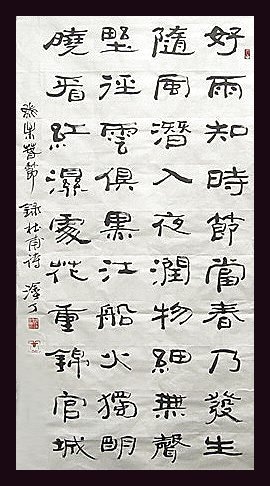 好雨知時節當春乃發生
隨風潛入夜潤物細無聲
野徑雲俱黑江船火獨明
曉看紅濕處花重錦官城
癸未春節 錄杜甫詩